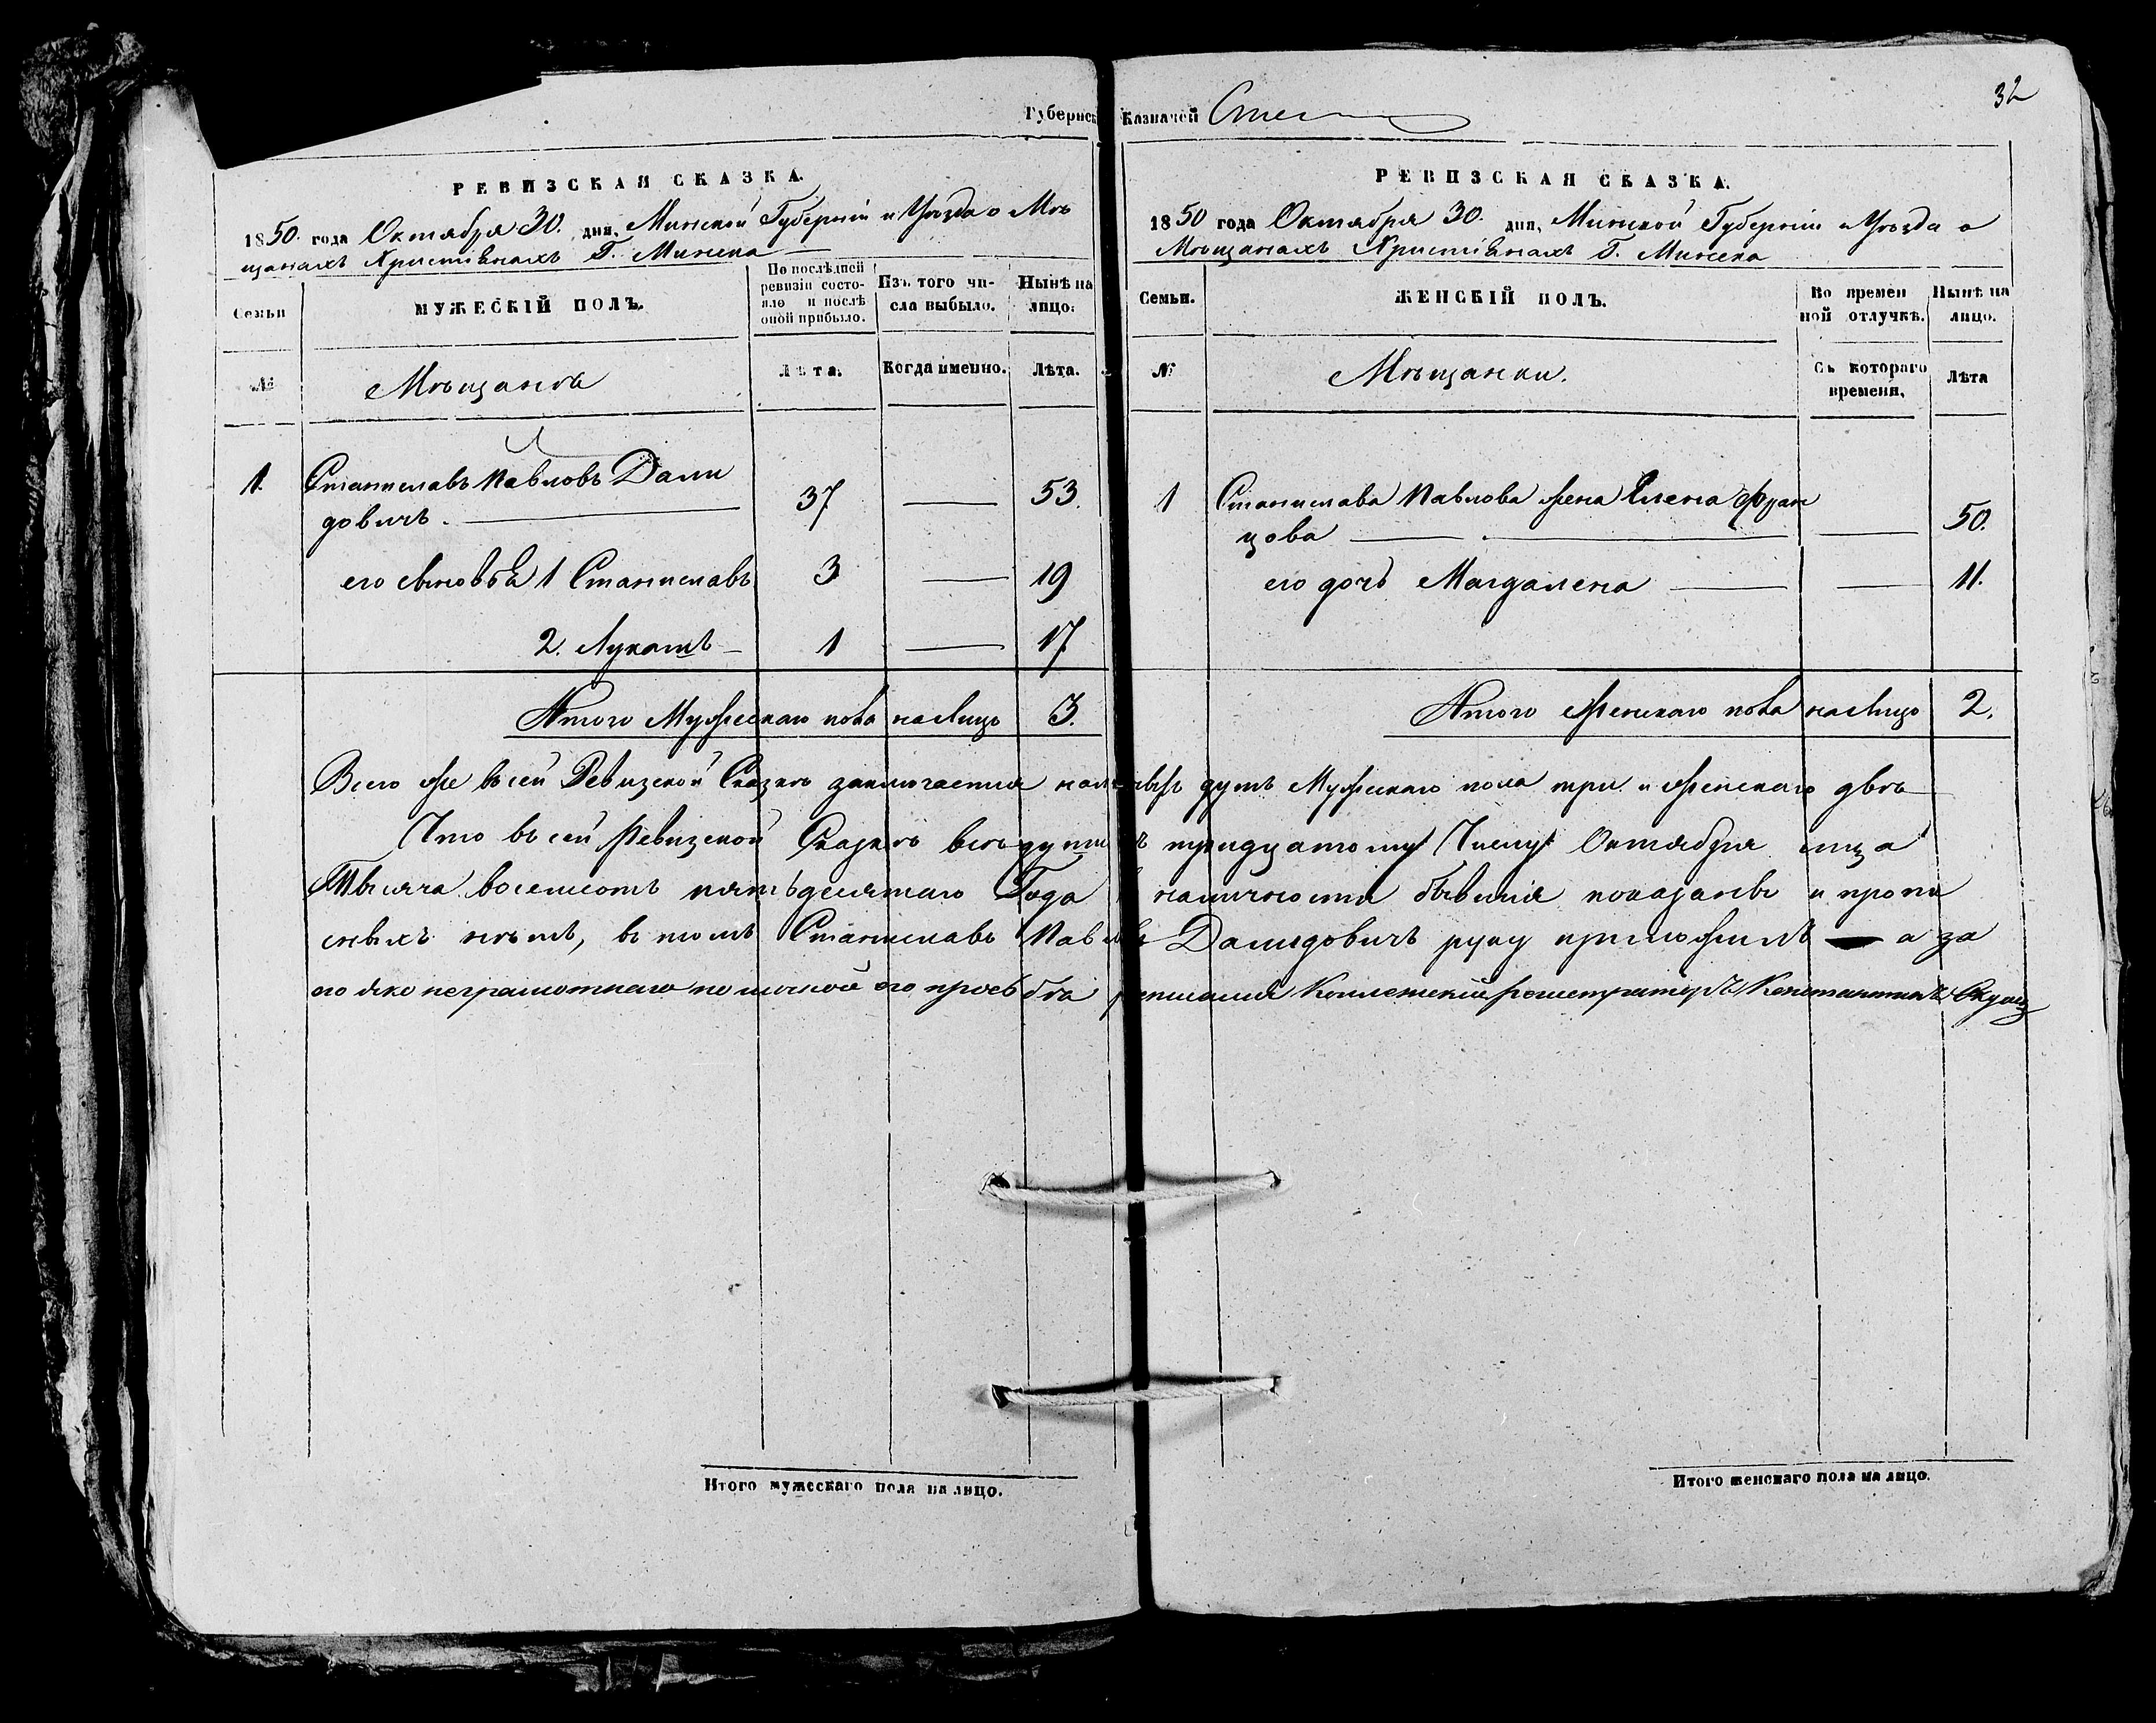 32
Губернск Казначей
РЕВИЗСКАЯ СКАЗКА.
1850. года Октября 30. дня, Минской Губерніи и Уѣзда о Мѣ
щанахъ Христіянахъ Г. Минска
Семьи
МУЖЕСКІЙ ПОЛЪ.
По послѣдней ревизіи состо-
яло и послѣ
оной прибыло.
Изъ того чи-
сла выбыло.
Нынѣ на
лицо.
№
Мѣщанѣ
Лѣта.
Когда именно.
Лѣта.
1. Станиславъ Павловъ Дами
довичъ. 37 — 53.
его сыновья 1 Станиславъ 3 — 19
2. Лукашъ 1 — 17
Итого Мужескаго пола налицо 3.
РЕВИЗСКАЯ СКАЗКА.
1850 года Октября 30. дня, Минской Губерніи и Уѣзда о
Мѣщанахъ Христіянахъ Г. Минска
Семьи.
ЖЕНСКІЙ ПОЛЪ.
Во времен
ной отлучкѣ.
Нынѣ на
лицо.
№
Мѣщанки.
Съ котораго
времени,
Лѣта
1 Станислава Павлова жена Елена Фран
цова — 50.
его дочь Магдалена — 11.
Итого Женскаго пола налицо 2.
Всего же въ сей Ревизской Сказкѣ заключается душъ Мужескаго пола три и Женскаго двѣ
Что въ сей Ревизской Сказкѣ всѣ души тридцатому Числу Октября мца
Тысяча восемсотъ пятьдесятаго Года наличности бывшія показаны и пропи
сныхъ нѣтъ, въ томъ Станиславъ Павловъ Дамидовичъ руку приложилъ — а за
его яко неграмотнаго по личной его просьбѣ Коллежскій регистраторъ Константинъ
Итого мужескаго пола на лицо.
Итого женскаго пола на лицо.